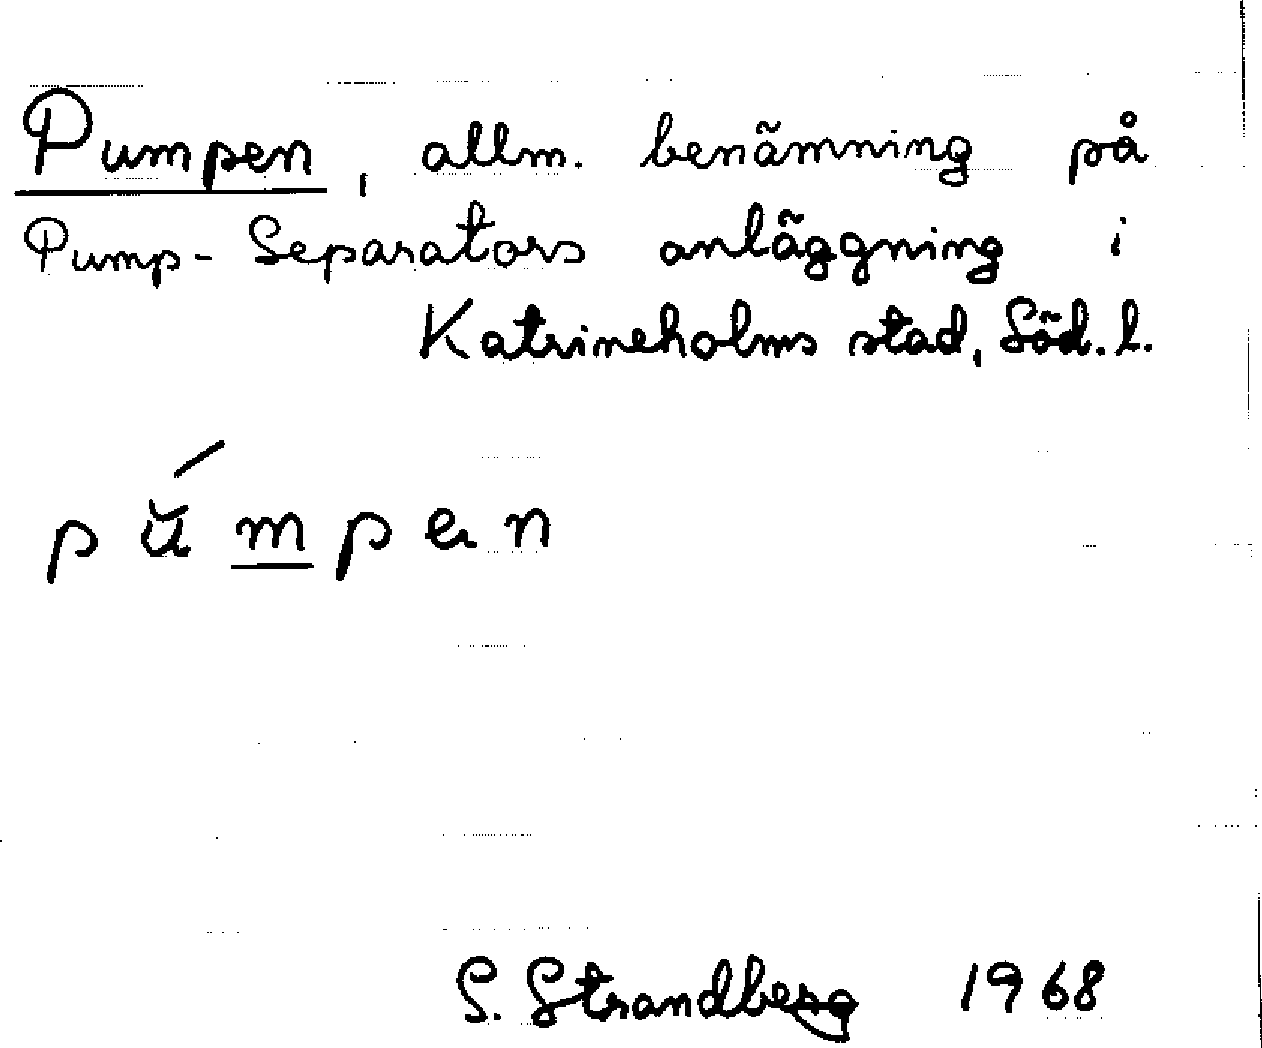 Pumpen, allm. benämning på
Pump-Separators anläggning i
Katrineholms stad, Söd. l.
pŭ́mpen
S. Strandberg 1968